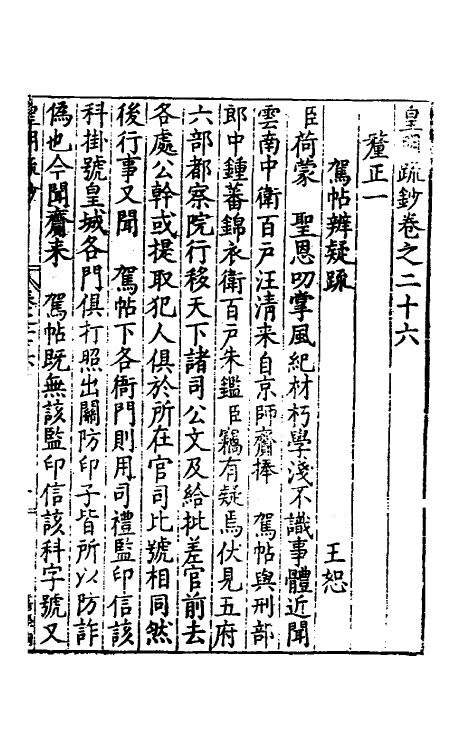 皇明疏鈔卷之二十六
釐正一
駕帖辨疑疏 王恕
臣荷蒙 聖恩叨掌風紀材朽學淺不識事體近聞
雲南中衛百戶汪清来自京師齎捧 駕帖與刑部
郎中鍾蕃錦衣衛百戶朱鑑臣竊有疑焉伏見五府
六部都察院行移天下諸司公文及給批差官前去
各處公幹或提取犯人俱於所在官司比號相同然
後行事又聞 駕帖下各衙門則用司禮監印信該
科掛號皇城各門俱打照出關防印子皆所以防詐
偽也今聞齎来 駕帖既無該監印信該科字號又
皇明疏鈔